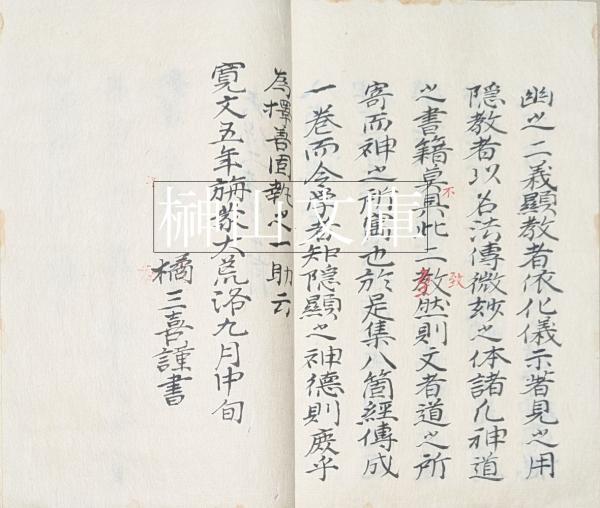 幽之二義顯教者依化儀示著見之用
隠教者以名法傳微妙之体諸凡神道
之書籍莫具此二教然則文者道之所
不
致
寄而神之所寓也於是集八箇經傳成
一巻而令学者知隠顯之神德則庶乎
為擇善固執之一助云
寛文五年旃蒙大荒洛九月中旬
橘三喜謹書
榊山文庫